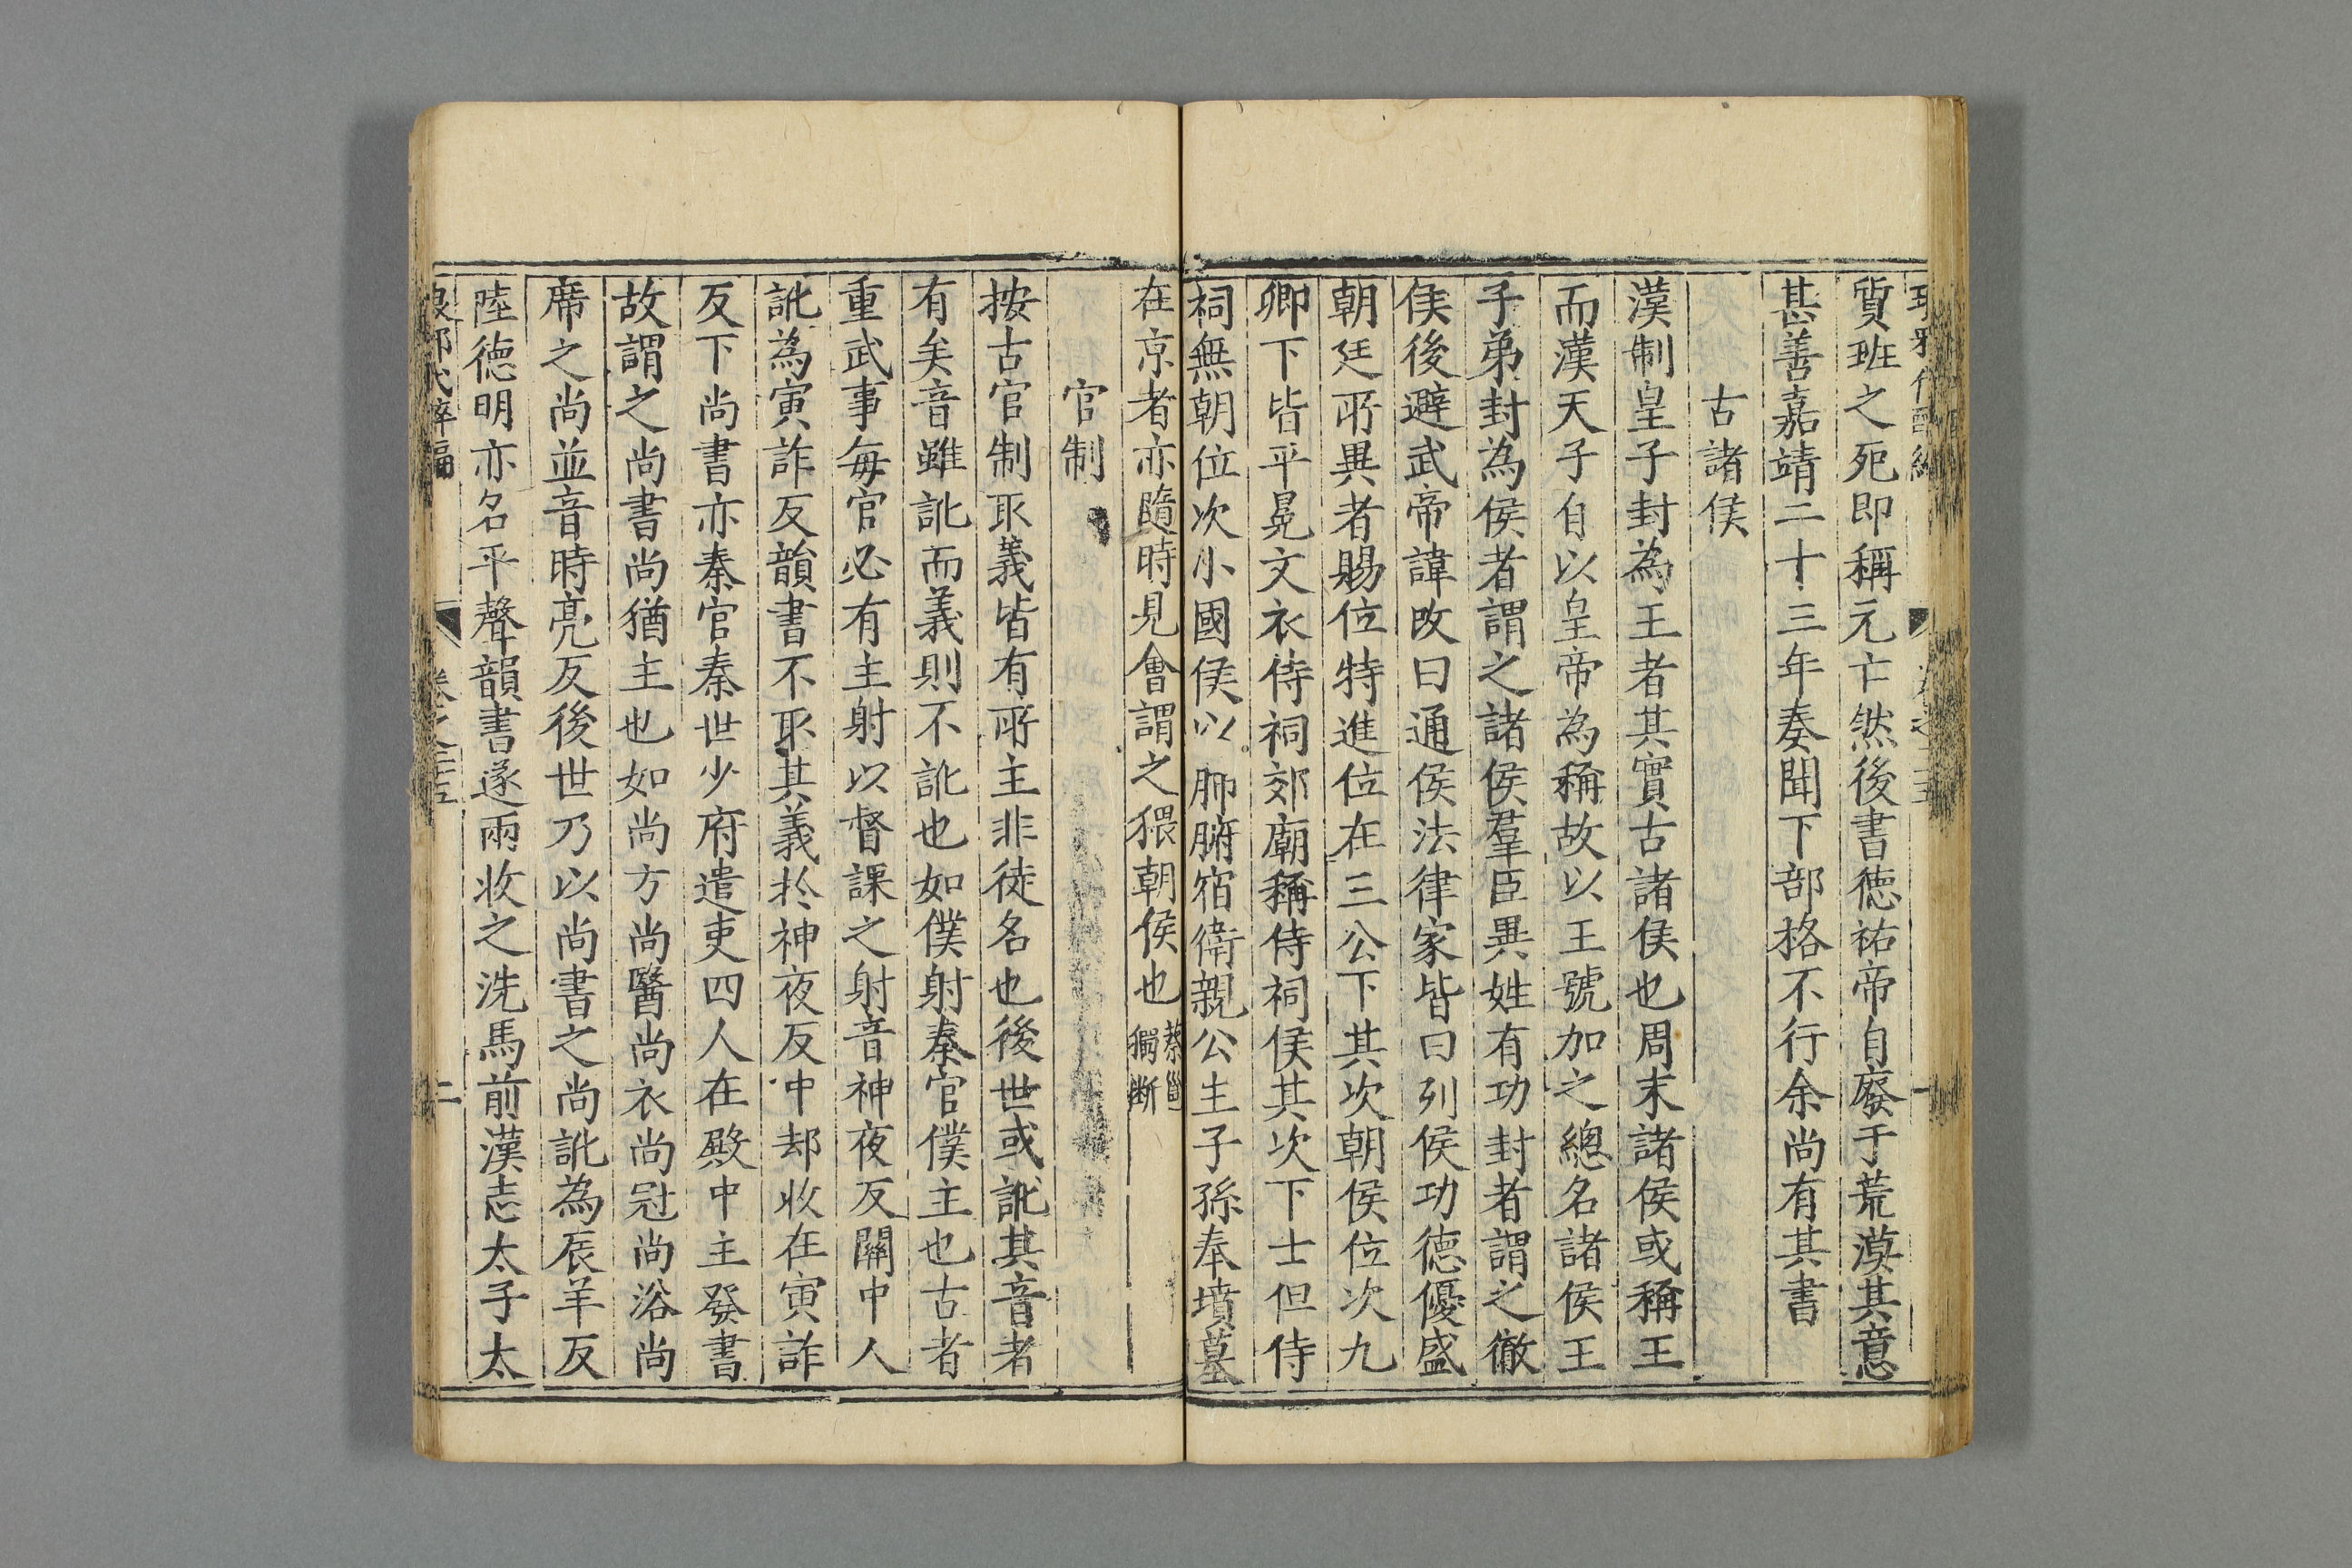 質班之死即稱元亡然後書德祐帝自廢于荒漠其意
甚善嘉靖二十三年奏聞下部格不行余尚有其書
古諸侯
漢制皇子封為王者其實古諸侯也周末諸侯或稱王
而漢天子自以皇帝為稱故以王號加之總名諸侯王
子弟封為侯者謂之諸侯羣臣異姓有功封者謂之徹
侯後避武帝諱改曰通侯法律家皆曰列侯功德優盛
朝廷所異者賜位特進位在三公下其次朝侯位次九
卿下皆平冕文衣侍祠郊廟稱侍祠侯其次下士但侍
祠無朝位次小國侯以肺腑宿衛親公主子孫奉墳墓
在京者亦隨時見會謂之猥朝侯也蔡邕獨斷
官制
按古官制取義皆有所主非徒名也後世或訛其音者
有矣音雖訛而義則不訛也如僕射秦官僕主也古者
重武事每官必有主射以督課之射音神夜反關中人
訛為寅詐反韻書不取其義於神夜反中却收在寅詐
反下尚書亦秦官秦世少府遣吏四人在殿中主發書
故謂之尚書尚猶主也如尚方尚醫尚衣尚冠尚浴尚
席之尚並音時亮反後世乃以尚書之尚訛為辰羊反
陸德明亦名平聲韻書遂兩收之洗馬前漢志太子太
琅邪代醉編
卷之五
二